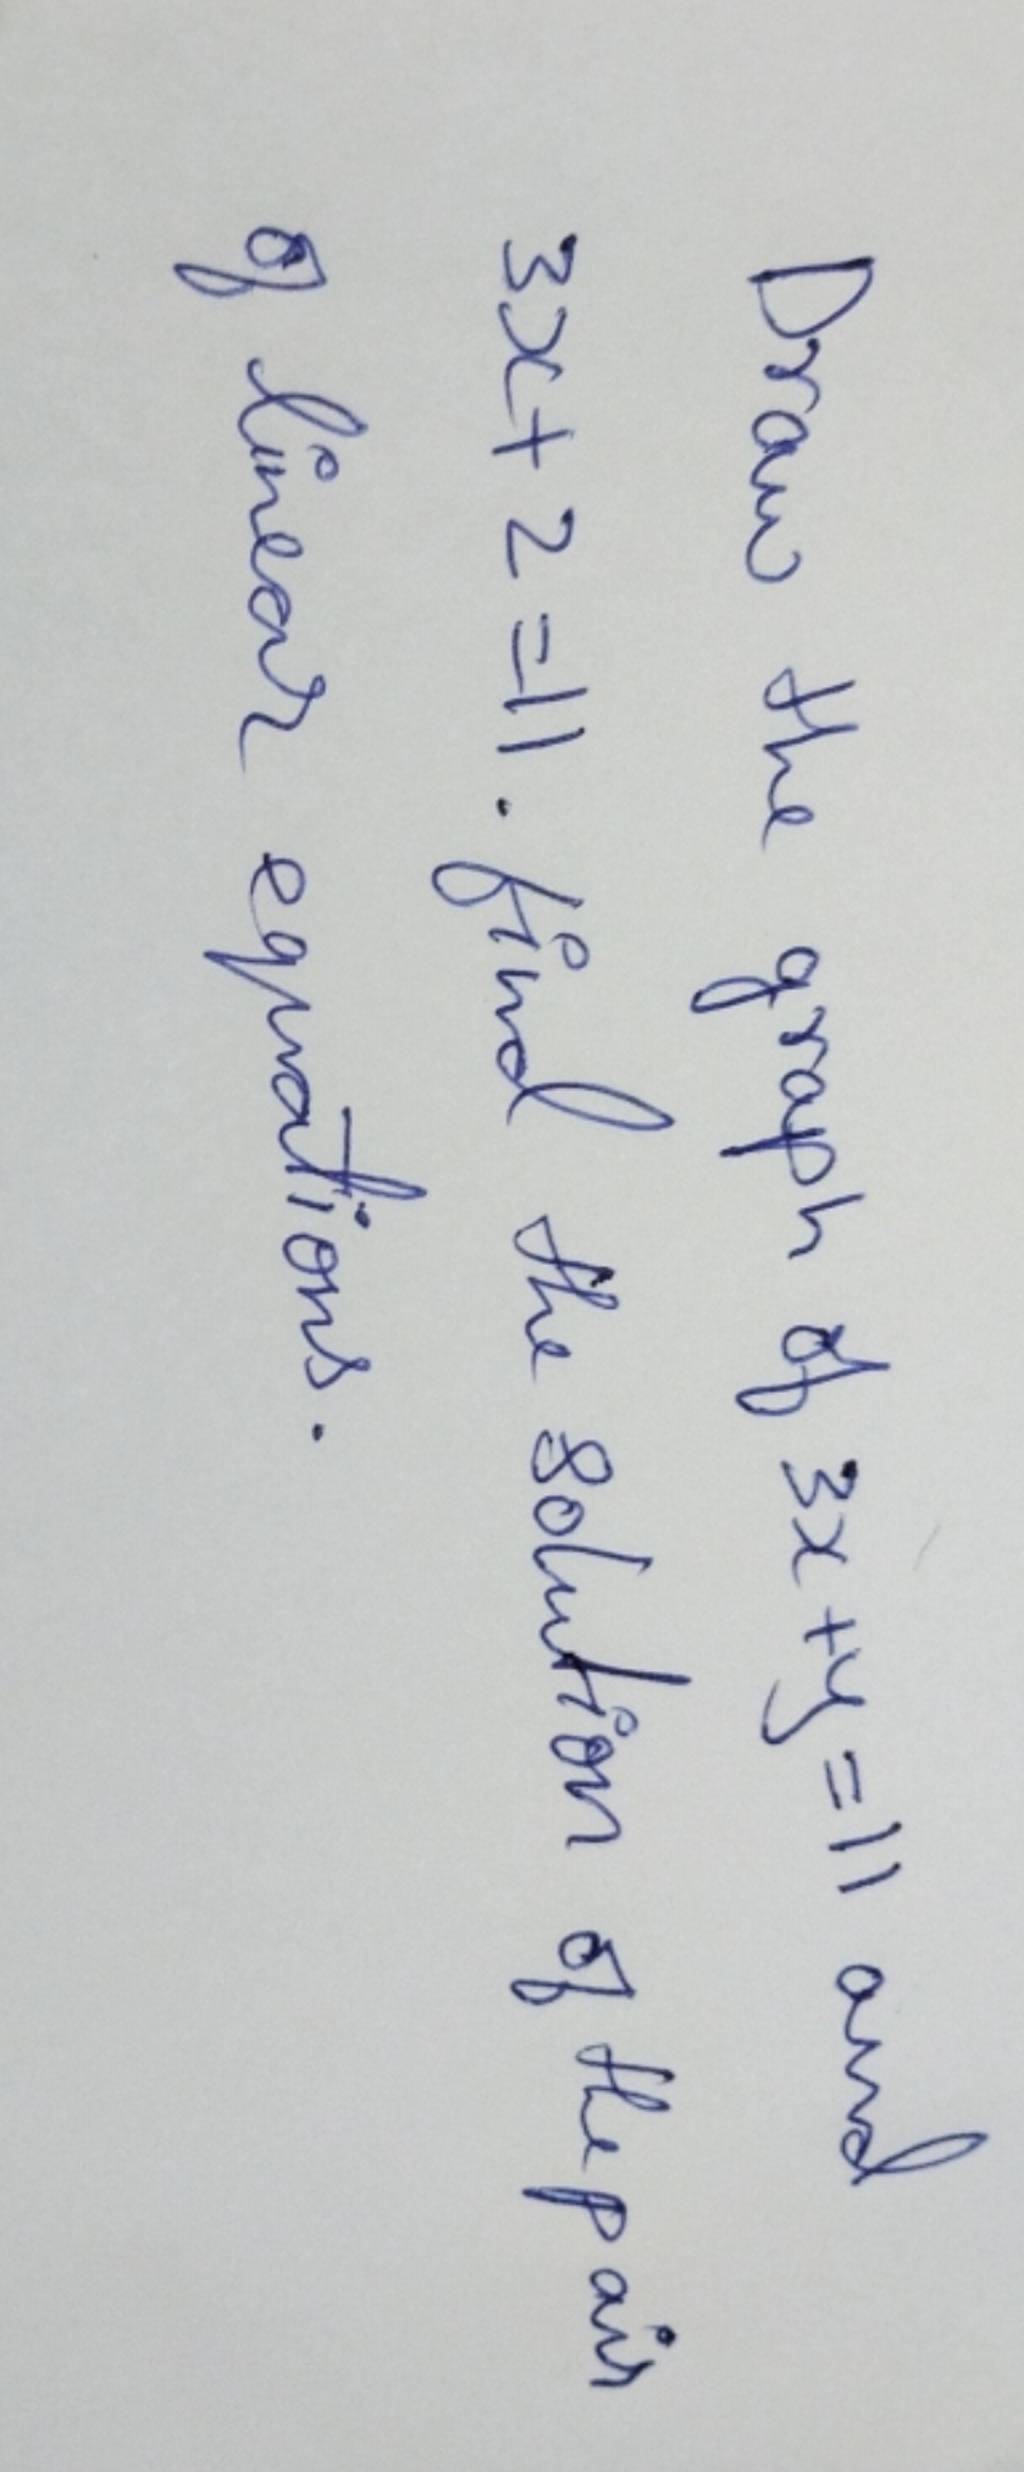 Draw the graph of 3x+y=11 and
3x+2=11. find the solution of the pair
of linear equations.